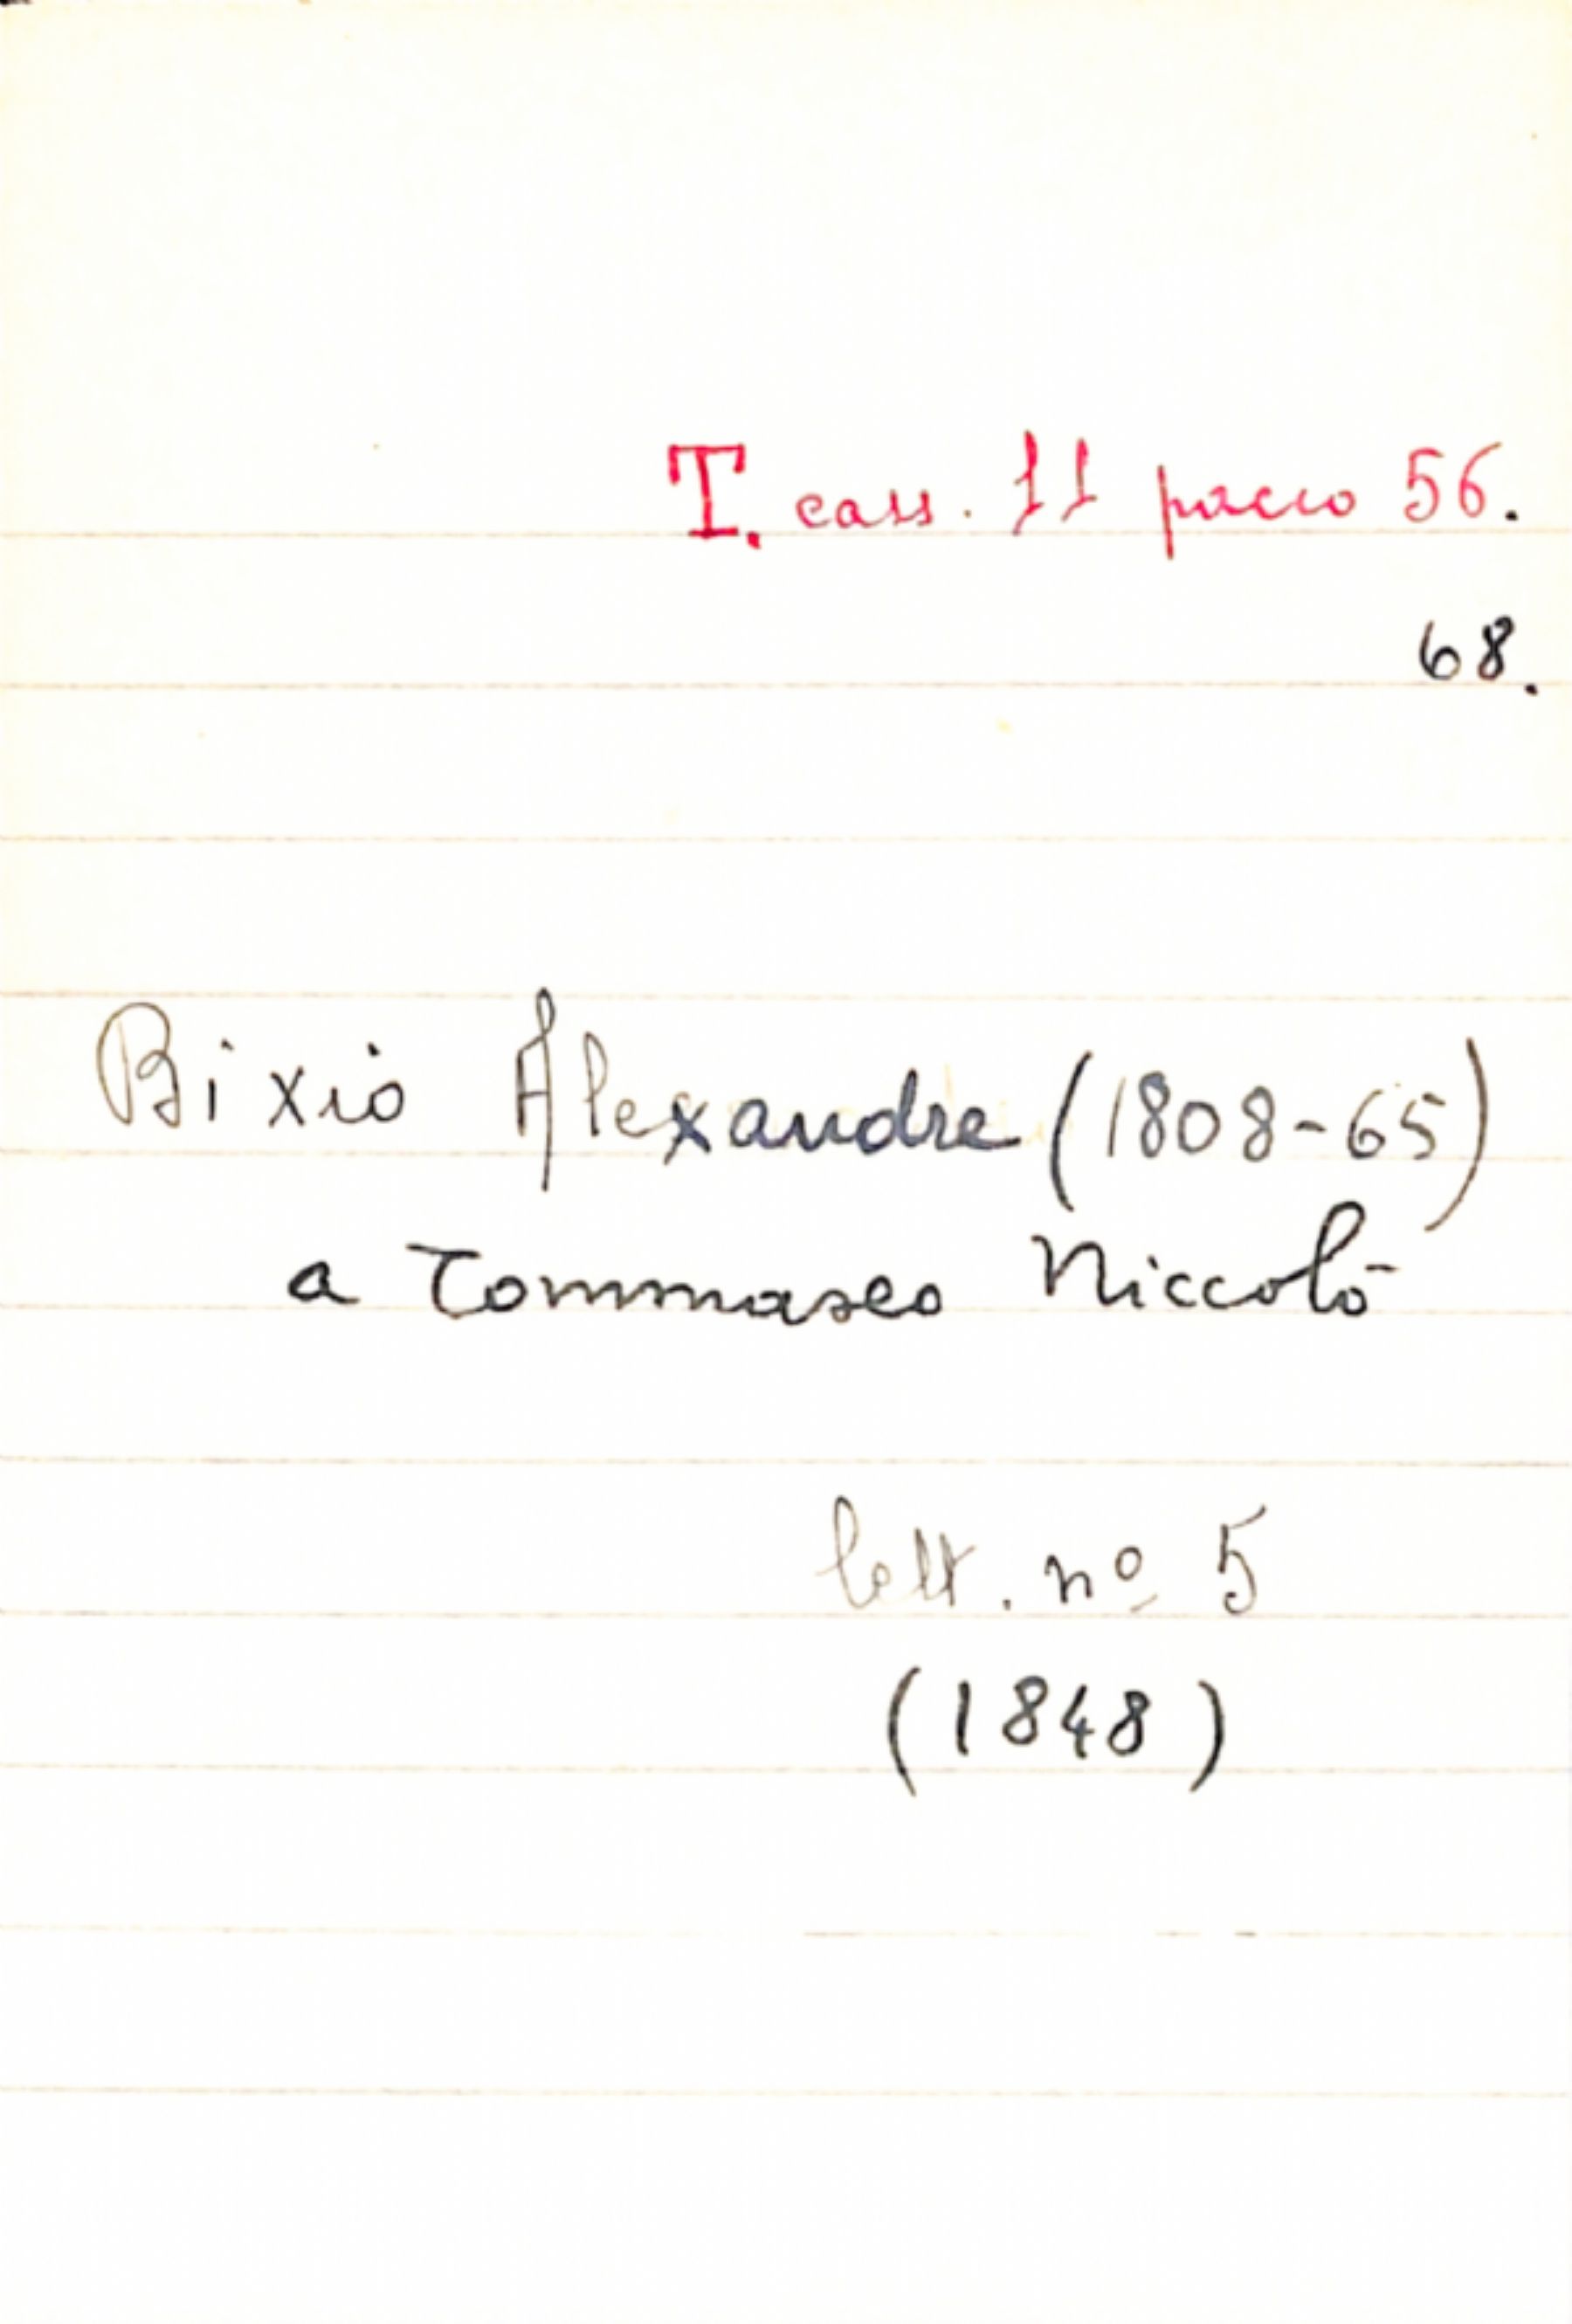 T. cass. 11 pacco 56.
68.
Bixio Alexandre (1808-65)
a Tommaseo Niccolò
lett. nº 5
(1848)